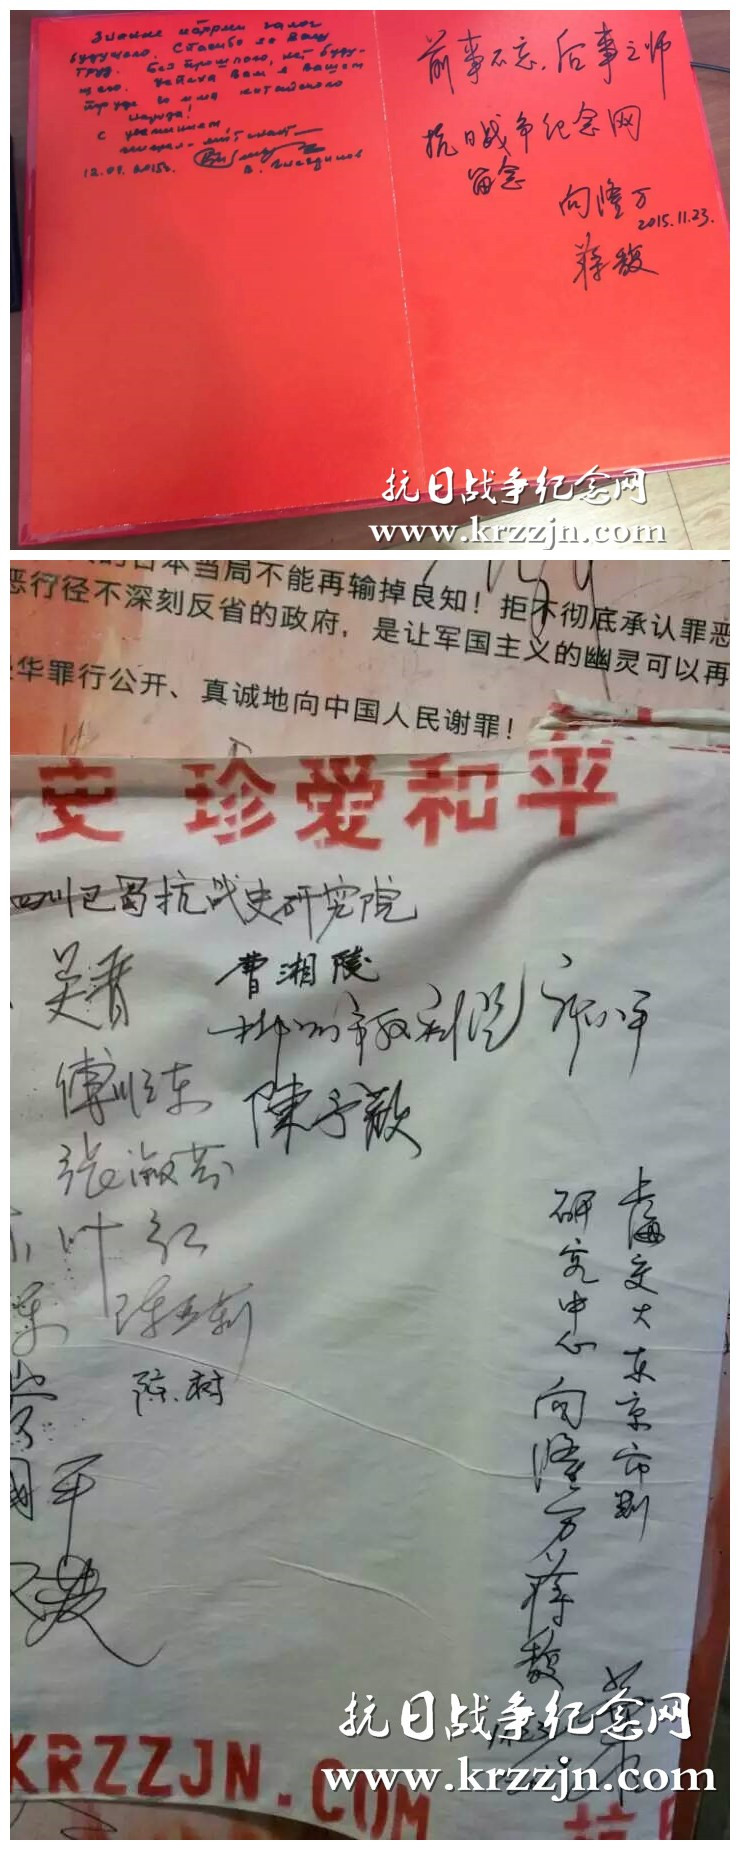 Знание истории залог
будущего. Спасибо за Ваш
труд. Без прошлого, нет буду-
щего. Успеха Вам в Вашем
труде во имя китайского
народа!
С уважением,
12.09.2015г.
前事不忘，后事之师
抗日战争纪念网
留念
向隆万
2015.11.23.
蒋馥
抗日战争纪念网
www.krzzjn.com
日本当局不能再输掉良知！拒不彻底承认罪恶
恶行径不深刻反省的政府，是让军国主义的幽灵可以再
华罪行公开、真诚地向中国人民谢罪！
史 珍爱和平
四川巴蜀抗战史研究院
吴晋
曹湘陵
傅顺东
陳予歡
张淑芬
叶红
陈树
国平
上海交大东京审判
研究中心 向隆万 蒋馥
抗日战争纪念网
www.krzzjn.com
KRZZJN.COM
抗日